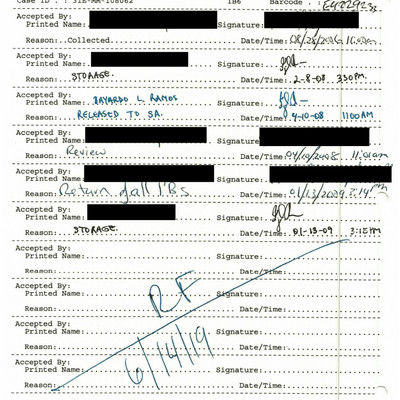 Case ID . : 31E-MM-108062 1B6 Barcode . : E4229232
Accepted By:
Printed Name: Signature:
Reason: Collected Date/Time: 08/28/2006
STORAGE.
Accepted By:
Printed Name: Signature:
Reason: Date/Time: 2-8-08 330PM.
Accepted By:
Printed Name: BAYARDO L. RAMOS Signature:
Reason: RELEASED TO SA. Date/Time: 4-10-08 1100AM
Accepted By:
Printed Name: Signature:
Reason: Review Date/Time: 11:01am
Accepted By:
Printed Name: Signature:
Reason: Return of all 1B's Date/Time: 01/13/2009 2:14pm
Accepted By:
Printed Name: Signature:
Reason: STORAGE. Date/Time: 01-13-09 3:15PM
Accepted By:
Printed Name: Signature:
Reason: Date/Time:
Accepted By:
Printed Name: Signature:
Reason: Date/Time:
RF
Accepted By:
Printed Name: Signature:
Reason: Date/Time:
6/14/19
Accepted By:
Printed Name: Signature:
Reason: Date/Time: